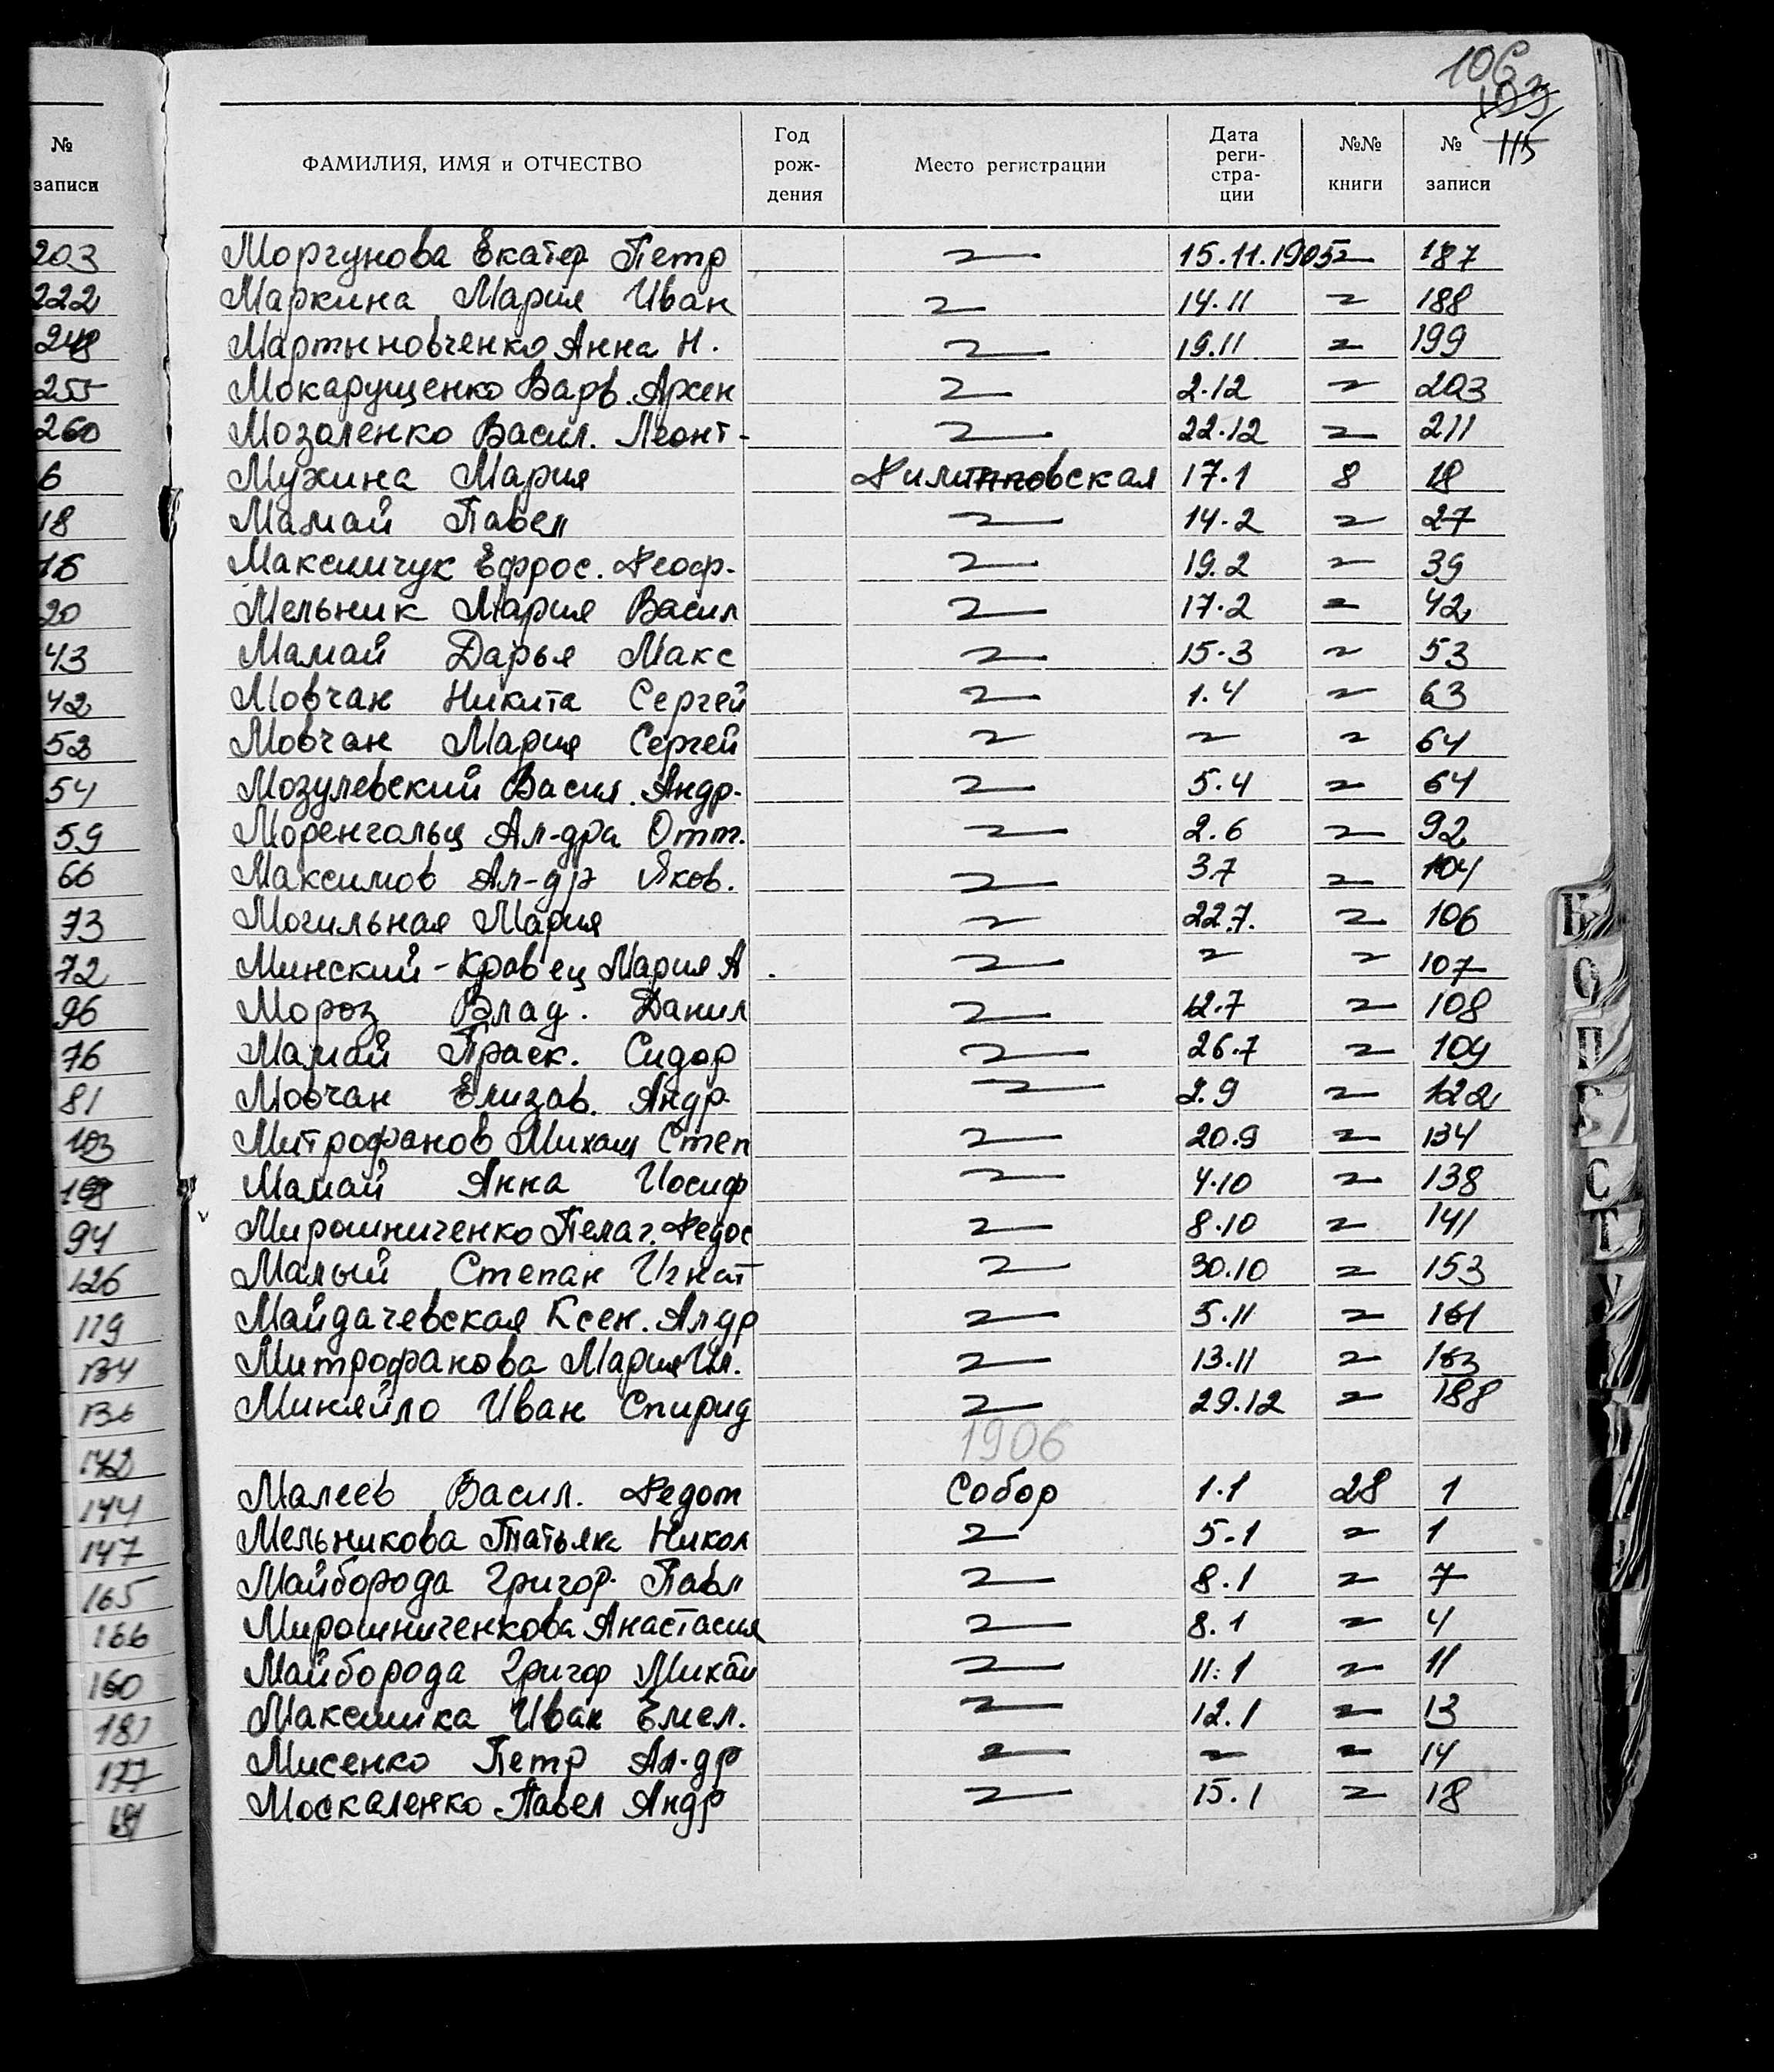 106
103
115
№ записи
ФАМИЛИЯ, ИМЯ и ОТЧЕСТВО Год рож- дения Место регистрации Дата реги- стра- ции №№ книги № записи
203 Моргунова Екатер Петр 〃 15.11.1905 〃 187
222 Маркина Мария Иван 〃 14.11 〃 188
248 Мартыновченко Анна Н. 〃 19.11 〃 199
255 Мокарущенко Варв. Арсен 〃 2.12 〃 203
260 Мозоленко Васил. Леонт- 〃 22.12 〃 211
6 Мухина Мария 17.1 8 18
18 Мамай Павел 〃 14.2 〃 27
16 Максимчук Ефрос. Феоф. 〃 19.2 〃 39
20 Мельник Мария Васил 〃 17.2 〃 42
43 Мамай Дарья Макс 〃 15.3 〃 53
42 Мовчан Никита Сергей 〃 1.4 〃 63
52 Мовчан Мария Сергей 〃 〃 〃 64
54 Мозулевский Васил. Андр. 〃 5.4 〃 64
59 Моренгольц Ал-дра Отт. 〃 2.6 〃 92
66 Максимов Ал-др Яков. 〃 3.7 〃 104
73 Могильная Мария 〃 22.7. 〃 106
72 Минский-Кравец Мария А. 〃 〃 〃 107
96 Мороз Влад. Данил 〃 12.7 〃 108
76 Мамай Праск. Сидор 〃 26.7 〃 109
81 Мовчан Елизав. Андр. 〃 2.9 〃 122
103 Митрофанов Михаил Степ 〃 20.9 〃 134
Мамай Анна Иосиф 〃 4.10 〃 138
94 Мирошниченко Пелаг. Федос 〃 8.10 〃 141
126 Малый Степан Игнат 〃 30.10 〃 153
119 Майдачевская Ксен. Алдр 〃 5.11 〃 161
134 Митрофанова Мария Ил. 〃 13.11 〃 163
136 Миняйло Иван Спирид 〃 29.12 〃 188
142 1906
144 Малеев Васил. Федот Собор 1.1 28 1
147 Мельникова Татьяна Никол 〃 5.1 〃 1
165 Майборода Григор. Павл 〃 8.1 〃 7
166 Мирошниченкова Анастасия 〃 8.1 〃 4
160 Майборода Григор Михаи 〃 11.1 〃 11
181 Максимка Иван Емел. 〃 12.1 〃 13
177 Мисенко Петр Ал-др 〃 〃 〃 14
181 Москаленко Павел Андр 〃 15.1 〃 18
Н
О
П
Р
С
Т
У